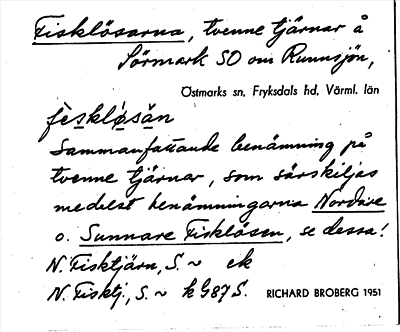 Fisklösarna, tvenne tjärnar å
Sörmark SO om Runnsjön,
Östmarks sn, Fryksdals hd, Värml. län
fèsklø̀sän
Sammanfattande benämning på
tvenne tjärnar, som särskiljas
medelst benämningarna Nordre
o. Sunnare Fisklösen, se dessa!
N. Fisktjärn, S. ~ ek
N. Fisktj., S. ~ k G87 S. RICHARD BROBERG 1951